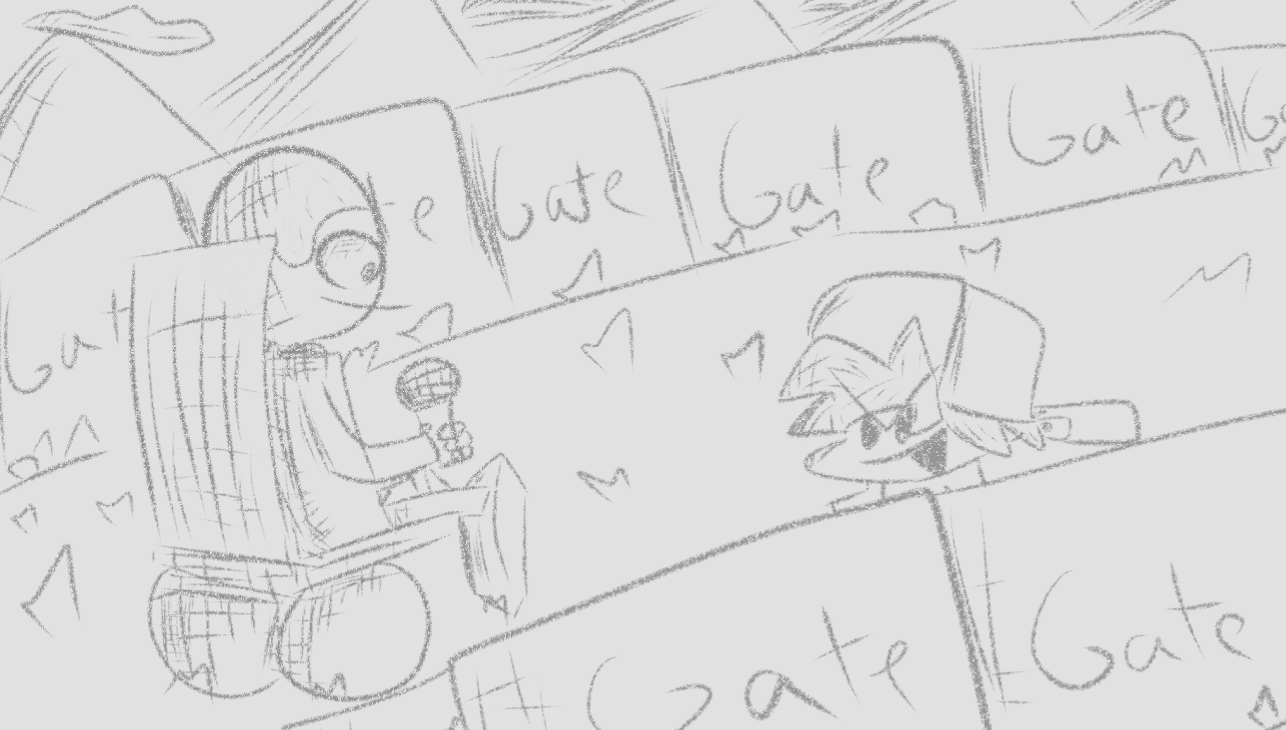 Gat
e
Gate
Gate
Gate
Ga
Gate
Gate